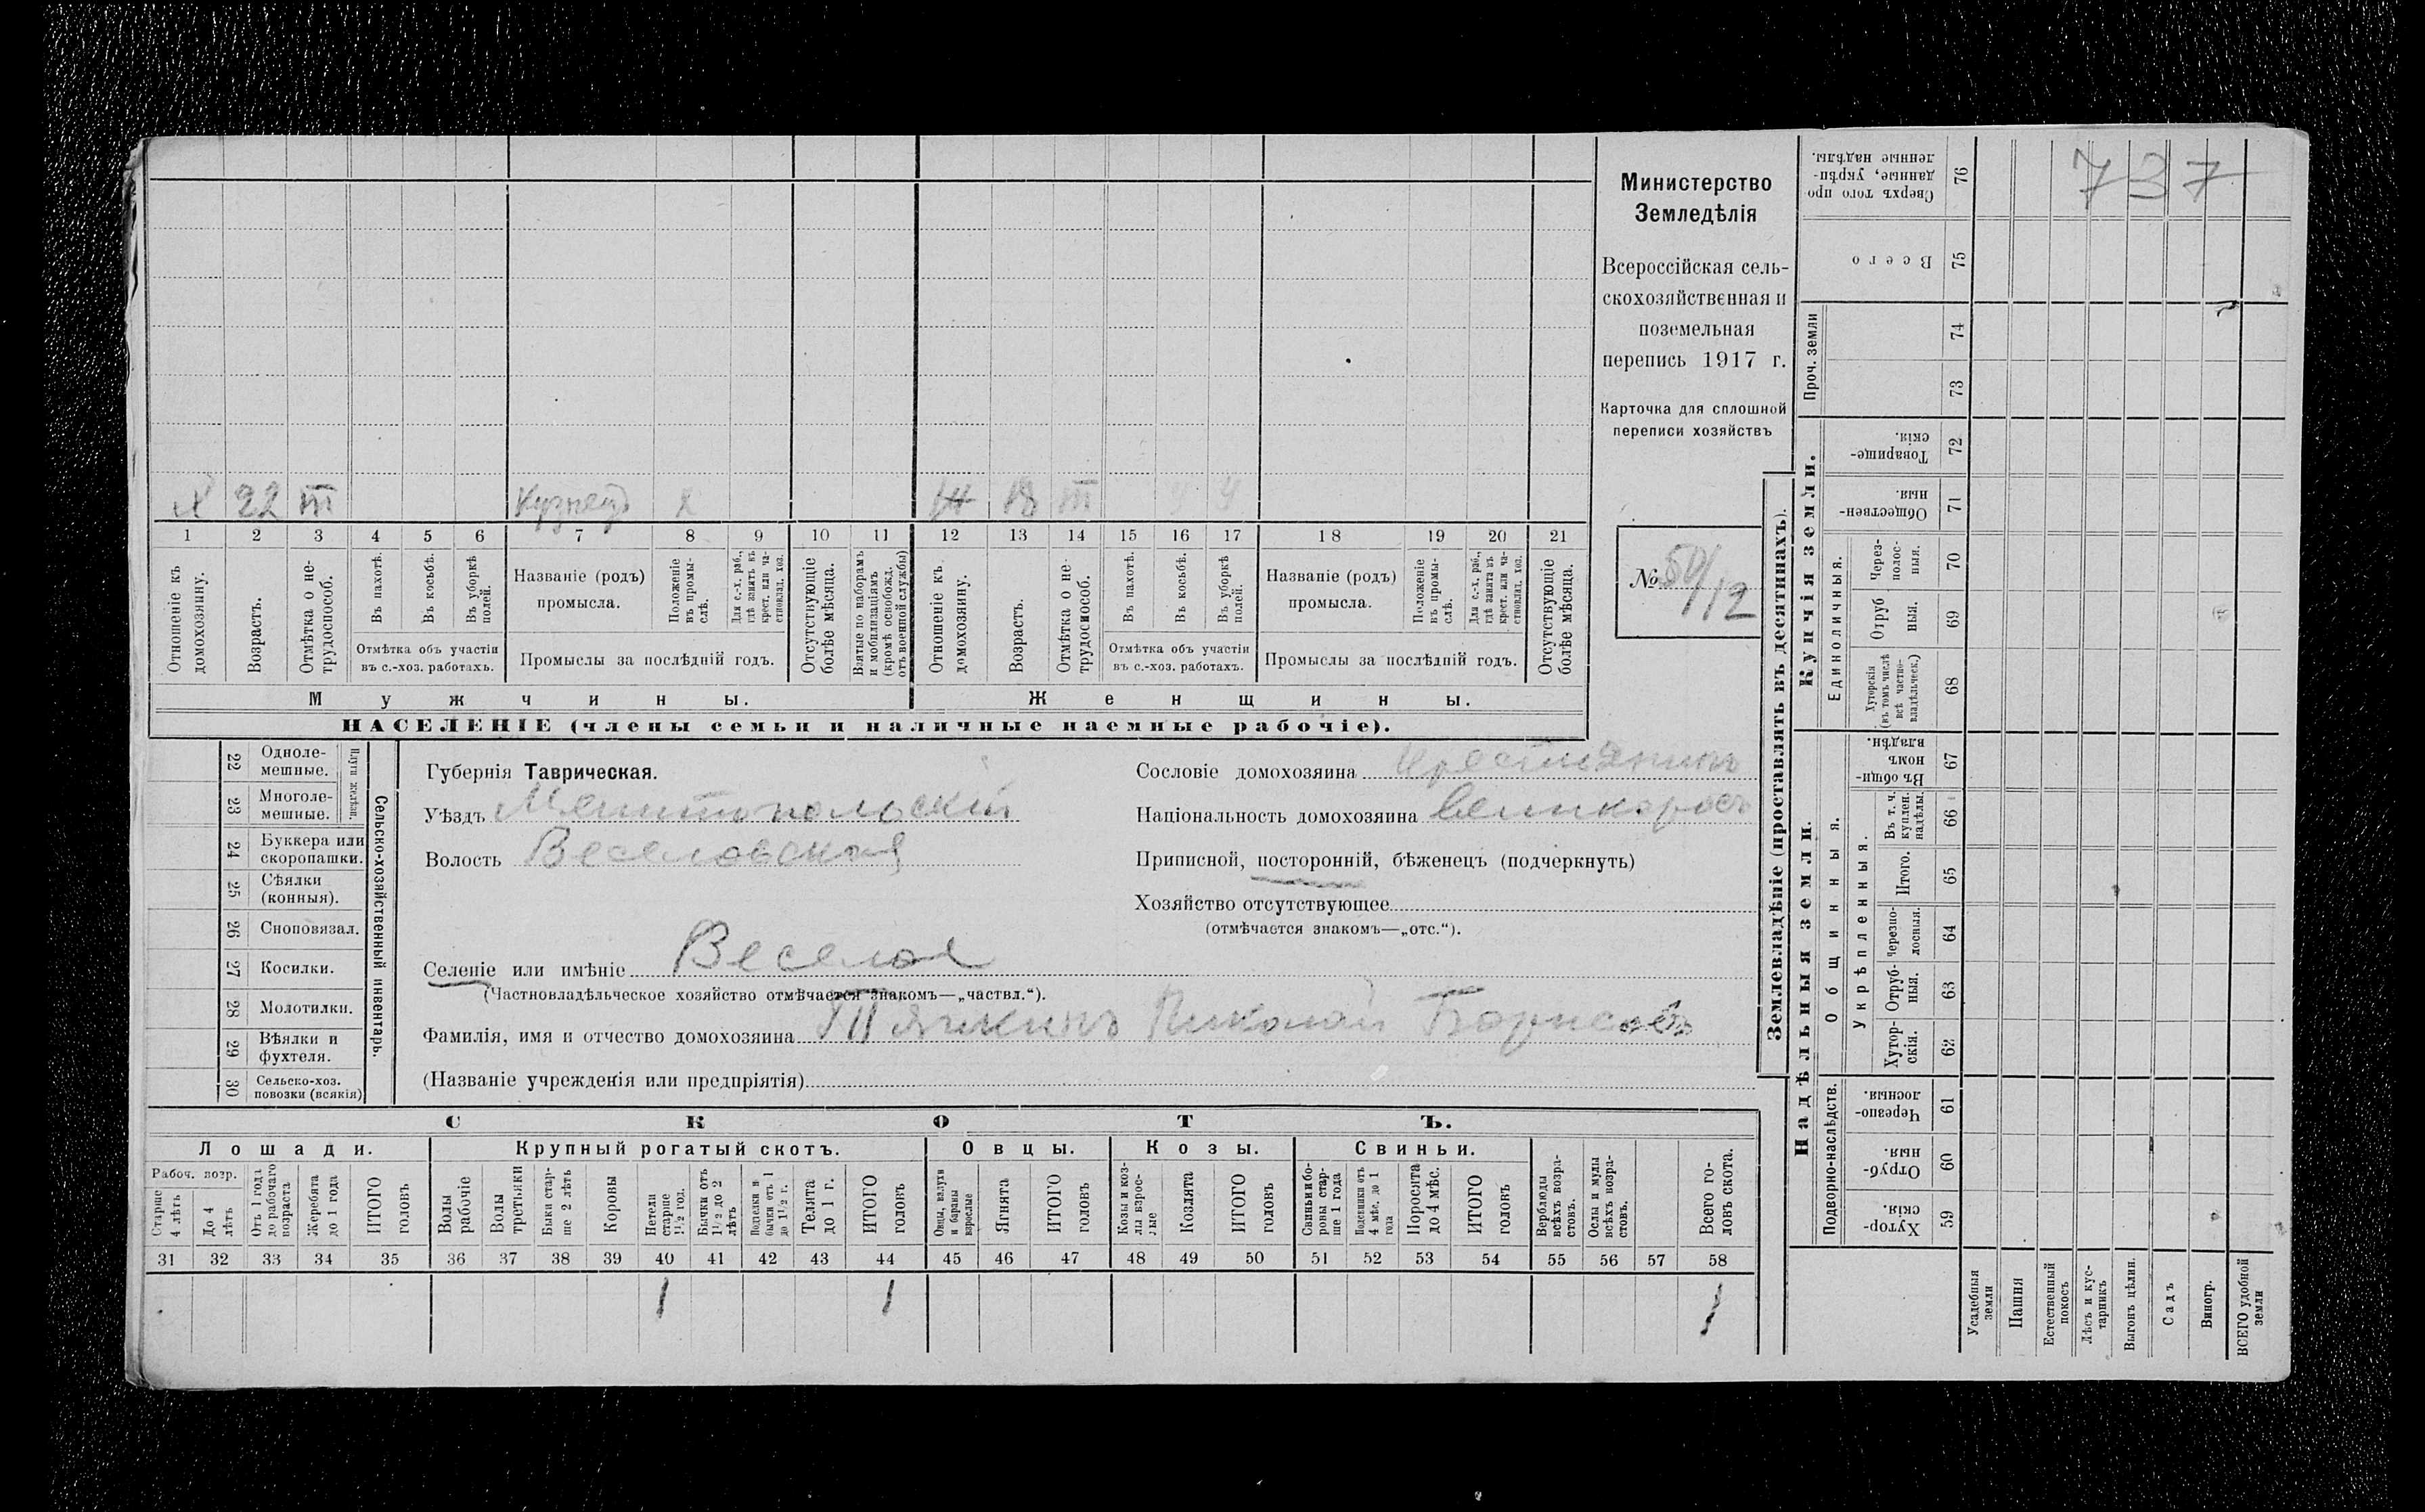 737
Министерство
Земледѣлія
Всероссійская сель-
скохозяйственная и
поземельная
перепись 1917 г.
Карточка для сплошной
переписи хозяйствъ
№ 50/12
22 Кузнецъ 18
1 2 3 4 5 6 7 8 9 10 11 12 13 14 15 16 17 18 19 20 21
Отношеніе къ домохозяину.
Возрастъ.
Отмѣтка о не-трудоспособ.
Въ пахотѣ.
Въ косьбѣ.
Въ уборкѣ полей.
Отмѣтка объ участіи
въ с.-хоз. работахъ.
Названіе (родъ)
промысла.
Положеніе въ промы-слѣ.
Для с.-х. раб., гдѣ занятъ въ крест. или ча-стновлад. хоз.
Промыслы за послѣдній годъ.
Отсутствующіе болѣе мѣсяца.
Взятые по наборамъ и мобилизаціямъ (кромѣ освобожд. отъ военной службы)
Отношеніе къ домохозяину.
Возрастъ.
Отмѣтка о не-трудоспособ.
Въ пахотѣ.
Въ косьбѣ.
Въ уборкѣ полей.
Отмѣтка объ участіи
въ с.-хоз. работахъ.
Названіе (родъ)
промысла.
Положеніе въ промы-слѣ.
Для с.-х. раб., гдѣ занята въ крест. или ча-стновлад. хоз.
Промыслы за послѣдній годъ.
Отсутствующіе болѣе мѣсяца.
Мужчины. Женщины.
НАСЕЛЕНІЕ (члены семьи и наличные наемные рабочіе).
22 Одноле-мешные.
23 Многоле-мешные.
Плуги желѣзн.
24 Буккера или скоропашки.
25 Сѣялки (конныя).
26 Сноповязал.
27 Косилки.
28 Молотилки.
29 Вѣялки и фухтеля.
30 Сельско-хоз. повозки (всякія)
Сельско-хозяйственный инвентарь.
Губернія Таврическая.
Уѣздъ Мелитопольскій
Волость Веселовская
Сословіе домохозяина Крестьянинъ
Національность домохозяина великоросъ
Приписной, посторонній, бѣженецъ (подчеркнуть)
Хозяйство отсутствующее
(отмѣчается знакомъ—„отс.“).
Селеніе или имѣніе Веселое
(Частновладѣльческое хозяйство отмѣчается знакомъ—„частвл.“).
Фамилія, имя и отчество домохозяина Николай Борисовъ
(Названіе учрежденія или предпріятія)
СКОТЪ.
Лошади. Крупный рогатый скотъ. Овцы. Козы. Свиньи.
Рабоч. возр.
Старше 4 лѣтъ
До 4 лѣтъ
Отъ 1 года до рабочаго возраста
Жеребята до 1 года
ИТОГО головъ
Волы рабочіе
Волы третьяки
Быки стар-ше 2 лѣтъ
Коровы
Нетели старше 1½ год.
Бычки отъ 1½ до 2 лѣтъ
Подтелки и бычки отъ 1 до 1½ г.
Телята до 1 г.
ИТОГО головъ
Овцы, валухи и бараны взрослые
Ягнята
ИТОГО головъ
Козы и коз-лы взрос-лые
Козлята
ИТОГО головъ
Свиньи и бо-ровы стар-ше 1 года
Подсвинки отъ 4 мѣс. до 1 года
Поросята до 4 мѣс.
ИТОГО головъ
Верблюды всѣхъ возра-стовъ.
Ослы и мулы всѣхъ возра-стовъ.
Всего го-ловъ скота.
31 32 33 34 35 36 37 38 39 40 41 42 43 44 45 46 47 48 49 50 51 52 53 54 55 56 57 58
1 1 1
Землевладѣніе (проставлять въ десятинахъ).
Надѣльныя земли. Купчія земли. Проч. земли
Подворно-наслѣдств.
Общинныя.
Укрѣпленныя.
Единоличныя.
Хутор-скія. 59
Отруб-ныя. 60
Черезпо-лосныя. 61
Хутор-скія. 62
Отруб-ныя. 63
Черезпо-лосныя. 64
Итого. 65
Въ т. ч. куплен. надѣлы. 66
Въ общин-номъ владѣн. 67
Хуторскія (въ томъ числѣ всѣ частно-владѣльческ.) 68
Отруб ныя. 69
Через-полос-ныя. 70
Обществен-ныя. 71
Товарище-скія. 72
73
74
Всего 75
Сверхъ того про данные, укрѣп-ленные надѣлы. 76
Усадебныя земли
Пашня
Естественный покосъ
Лѣсъ и кус-тарникъ
Выгонъ цѣлин.
Садъ
Виногр.
ВСЕГО удобной земли